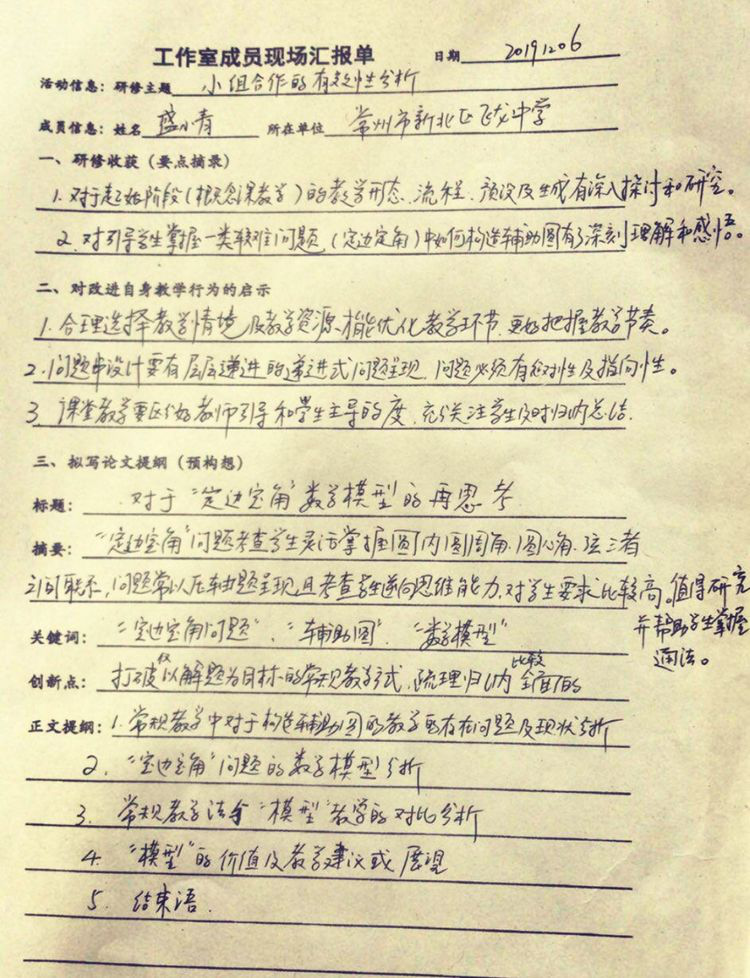 工作室成员现场汇报单 日期 20191206
活动信息：研修主题 小组合作的有效性分析
成员信息：姓名 蓝小青 所在单位 常州市新北区飞龙中学
一、研修收获（要点摘录）
1. 对于起始阶段（概念课教学）的教学形态、流程、预设及生成有深入探讨和研究。
2. 对引导学生掌握一类较难问题（定边定角）中如何构造辅助圆有了深刻理解和感悟。
二、对改进自身教学行为的启示
1. 合理选择教学情境及教学资源、才能优化教学环节、更好把握教学节奏。
2. 问题串设计要有层层递进的递进式问题呈现，问题必须有针对性及指向性。
3. 课堂教学要区分好教师引导和学生主导的度，充分关注学生及时归纳总结.
三、拟写论文提纲（预构想）
标题： 对于"定边定角"数学模型的再思考
摘要： "定边定角"问题考查学生灵活掌握圆内圆周角、圆心角、弦三者
之间联系，问题常以压轴题呈现，且考查学生逆向思维能力，对学生要求比较高。值得研究
并帮助学生掌握
通法。
关键词： "定边定角问题"、"辅助圆"、"数学模型"
创新点： 打破仅以解题为目标的常规教学式，梳理归纳比较全面的
正文提纲：1. 常规教学中对于构造辅助圆的教学存在问题及现状分析
2. "定边定角"问题的数学模型分析
3. 常规教学法与"模型"教学的对比分析
4. "模型"的价值及教学建议或展望
5. 结束语.